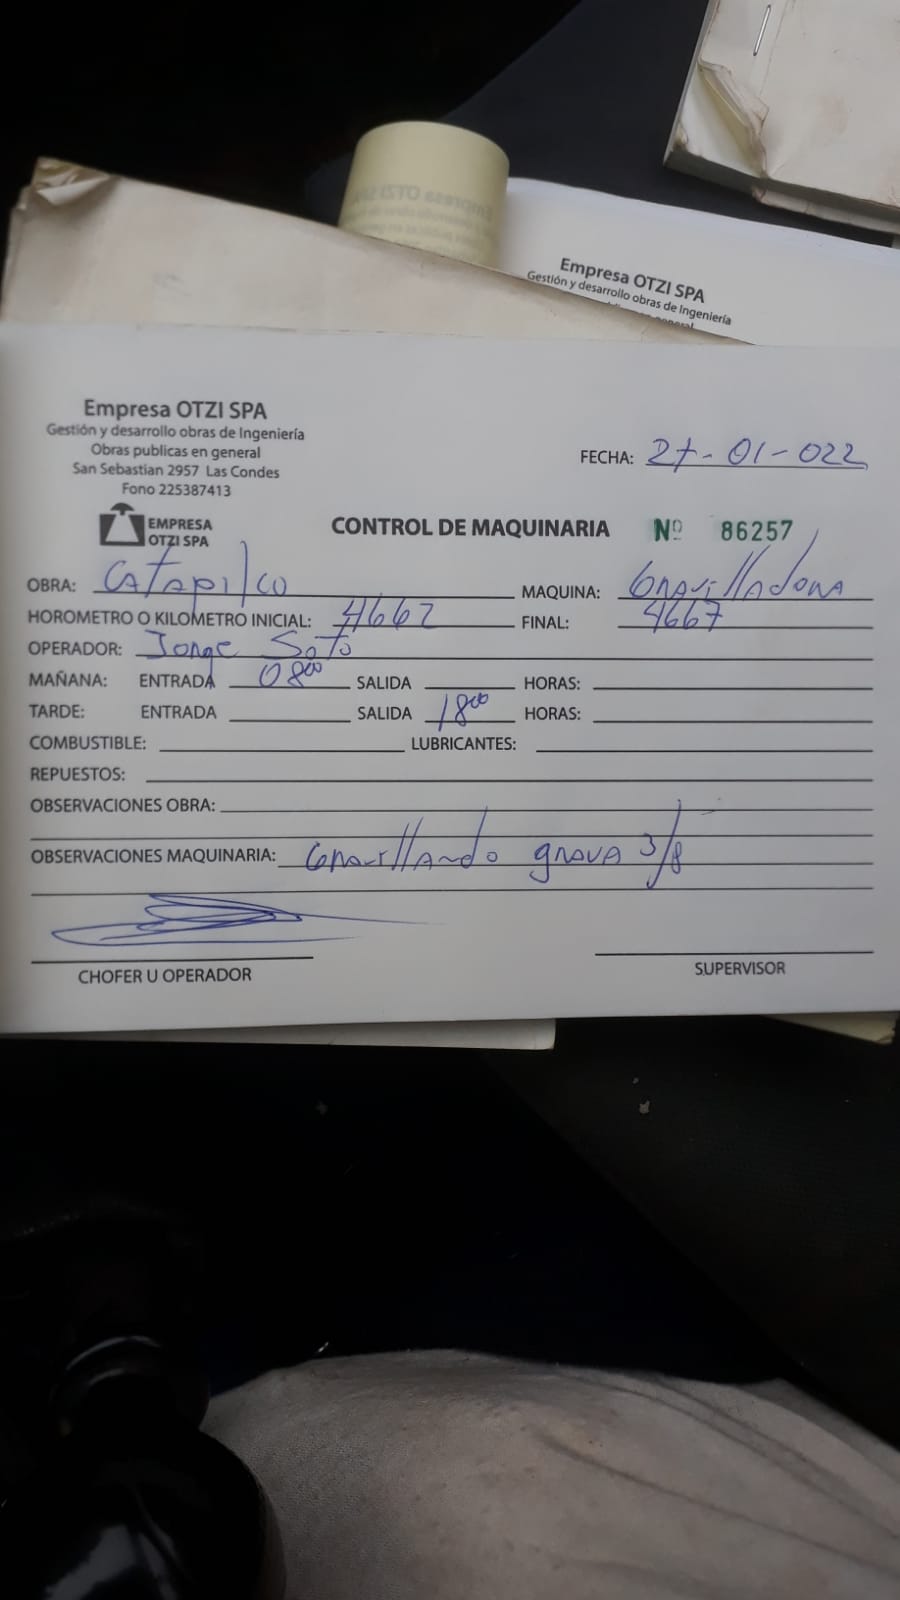 Empresa OTZI SPA
Gestión y desarrollo obras de Ingeniería
Empresa OTZI SPA
Gestión y desarrollo obras de Ingeniería
Obras publicas en general
San Sebastian 2957 Las Condes
Fono 225387413
FECHA: 27-01-022
EMPRESA
OTZI SPA
CONTROL DE MAQUINARIA Nº 86257
OBRA: CATAPILCO MAQUINA: GRAVILLADORA
HOROMETRO O KILOMETRO INICIAL: 4662 FINAL: 4667
OPERADOR: Jorge Soto
MAÑANA: ENTRADA 08⁰⁰ SALIDA HORAS:
TARDE: ENTRADA SALIDA 18⁰⁰ HORAS:
COMBUSTIBLE: LUBRICANTES:
REPUESTOS:
OBSERVACIONES OBRA:
OBSERVACIONES MAQUINARIA: GRAVILLANDO grava 3/8
CHOFER U OPERADOR SUPERVISOR